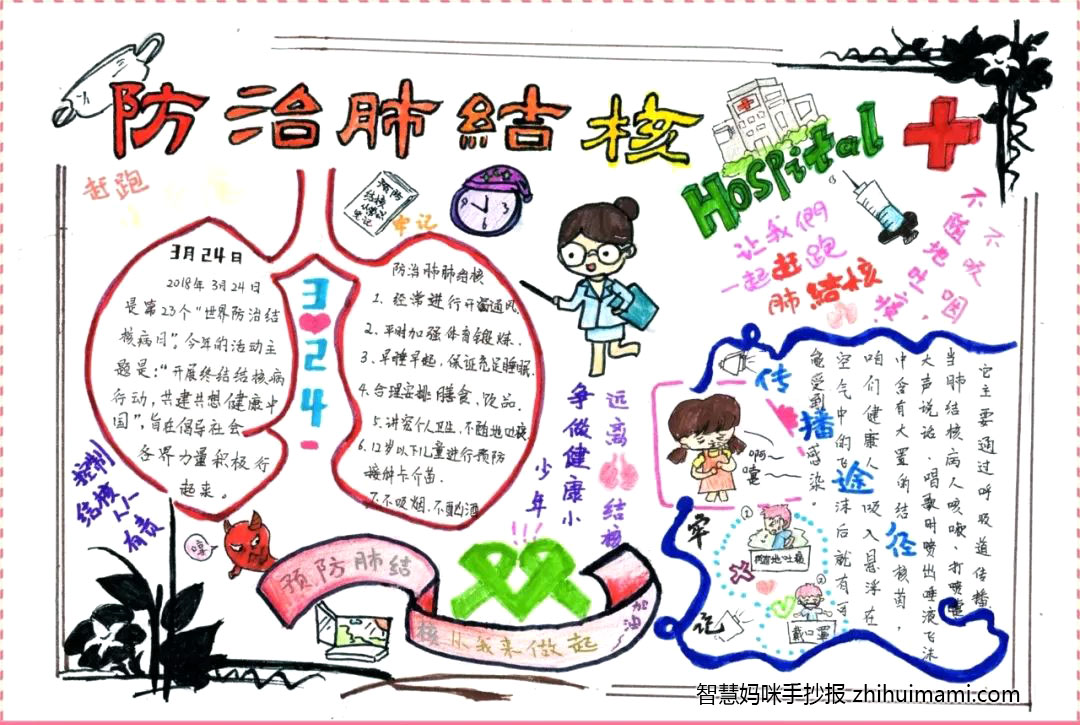 防治肺結核
Hospital
赶跑
预防
结核
牢记
让我们
一起赶跑
肺结核
不随地吐痰、
不吸烟
3月24日
2018年3月24日
是第23个“世界防治结
核病日”。今年的活动主
题是:“开展终结结核病
行动,共建共想健康中
国”,旨在倡导社会
各界力量积极行
起来。
3
24
防治肺肺结核
1、经常进行开窗通风.
2、平时加强体育锻炼.
3、早睡早起,保证充足睡眠.
4、合理安排膳食、饮品.
5、讲究个人卫生,不随地吐痰.
6、12岁以下儿童进行预防
接种卡介苗.
7、不吸烟、不酗酒
远离结核
争做健康小
少年
控制
结核
人人
有责
哼
预防肺结
核从我来做起
加油
传播途径
它主要通过呼吸道传播
当肺结核病人咳嗽、打喷嚏
大声说话、唱歌时喷出唾液飞沫
中含有大量的结核菌,
咱们健康人吸入悬浮在
空气中的飞沫后就有可
龟受到感染。
啊~
嚏~
牢记
随地吐痰
戴口罩
智慧妈咪手抄报 zhihuimami.com